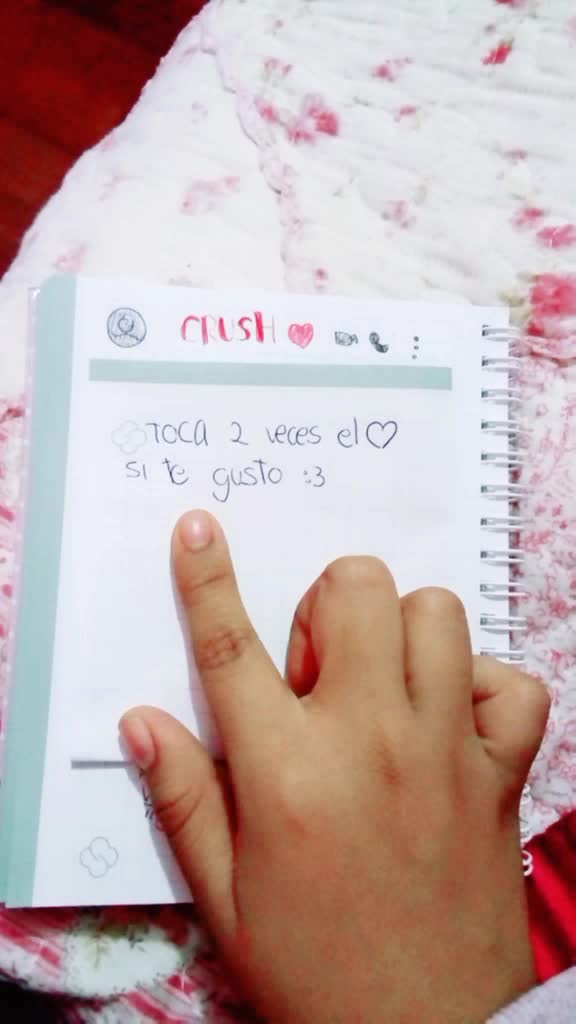 CRUSH ♥
TOCA 2 veces el ♡
si te gusto :3